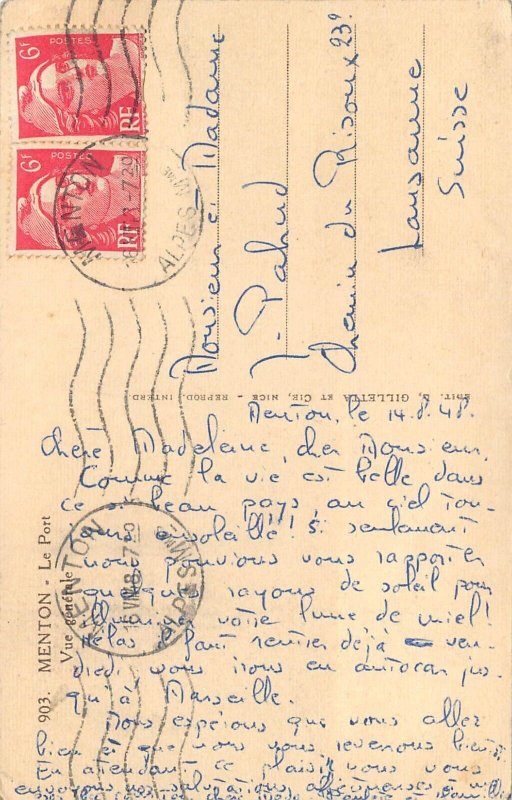 6F POSTES RF
6F POSTES RF
MENTON
ALPES MME
Monsieur et Madame
J. Pahud
Chemin du Risoux 23
Lausanne
Suisse
EDIT. GILLETTA ET CIE, NICE - REPROD. INTERD
903. MENTON - Le Port
Vue générale
MENTON
ALPES MME
Menton, le 14.8.48.
Chère Madeleine, cher Monsieur,
Comme la vie est belle dans
ce si beau pays, au ciel tou-
jours ensoleillé!!! Si seulement
nous pouvions vous rapporter
quelques rayons de soleil pour
illuminer votre lune de miel!
Hélas il faut rentrer déjà ven-
dredi nous irons en autocar jus-
qu'à Marseille.
Nous espérons que vous allez
bien et que nous vous reverrons bientôt
En attendant ce plaisir nous vous
envoyons nos salutations